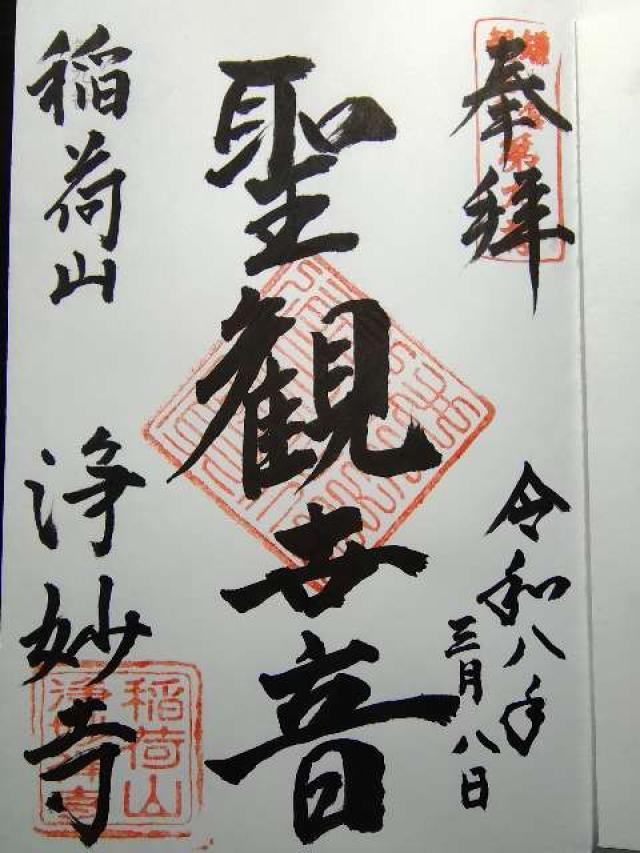 奉拝
令和八年
三月八日
聖観世音
稲荷山
浄妙寺
稲荷山
浄妙禅寺